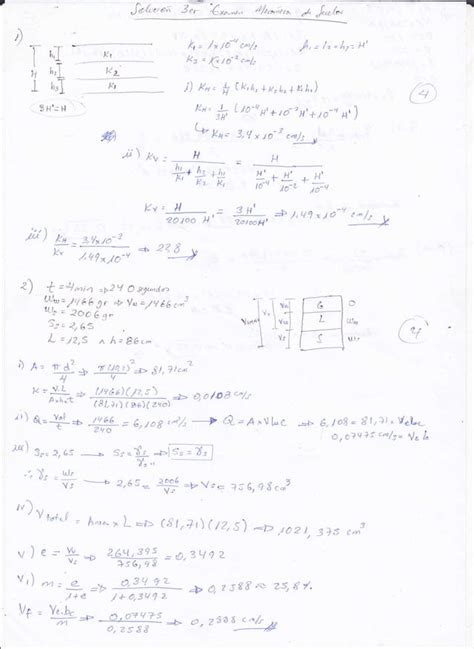 Solución 3er Examen Mecánica de Suelos
1)
H h1 h2 h3
K1
K2
K1
3H'=H
K1 = 1x10^-4 cm/s
h1 = h2 = h3 = H'
K2 = 1x10^-2 cm/s
i) KH = 1/H (K1h1 + K2h2 + K3h3)
KH = 1/3H' (10^-4 H' + 10^-2 H' + 10^-4 H')
↳ KH = 3,4x10^-3 cm/s
4
ii) KV = H / (h1/K1 + h2/K2 + h3/K1) = H / (H'/10^-4 + H'/10^-2 + H'/10^-4)
KV = H / 20100 H' = 3H' / 20100H' ⇒ 1,49x10^-4 cm/s
iii) KH/KV = 3,4x10^-3 / 1,49x10^-4 ⇒ 22,8
2) t = 4min ⇒ 240 segundos
Ww = 1466gr ⇒ Vw = 1466cm³
Ws = 2006gr
Ss = 2,65
L = 12,5 ∧ h = 86cm
G O
L Ww
S Ws
4
i) A = πd²/4 ⇒ π(10,2)²/4 ⇒ 81,71cm²
K = V.L / A.h.t ⇒ (1466)(12,5) / (81,71)(86)(240) ⇒ 0,0108 cm/s
ii) Q = Vol/t ⇒ 1466/240 = 6,108 cm/s → Q = A x Vloc ⇒ 6,108 = 81,71 x Veloc
0,07475 cm/s =
iii) Ss = 2,65 → Ss = γs/γw → Ss = γs
∴ γs = Ws/Vs → 2,65 = 2006/Vs ⇒ Vs = 756,98cm³
iv) V total = x L ⇒ (81,71)(12,5) ⇒ 1021,375 cm³
v) e = Vv/Vs ⇒ 264,395/756,98 ⇒ 0,3492
vi) m = e/1+e ⇒ 0,3492/1+0,3492 ⇒ 0,2588 ≈ 25,8%
Vf = Veloc/m ⇒ 0,07475/0,2588 ⇒ 0,2888 cm/s